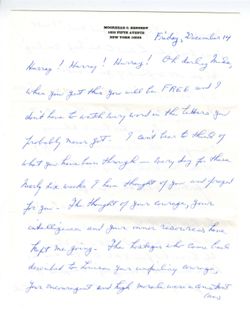 MOORHEAD C. KENNEDY
1165 FIFTH AVENUE
NEW YORK 10029
Friday, December 14
Hurray! Hurray! Hurray! Oh darling Mike,
when you get this you will be FREE and I
don't have to watch every word in the letters you
probably never got. I can't bear to think of
what you have been through — every day for these
nearly six weeks I have thought of you and prayed
for you. The thought of your courage, your
intelligence and your inner resources have
kept me going. The hostages who came back
described to Louisa your unfailing courage,
your encouragement and high morale were a constant